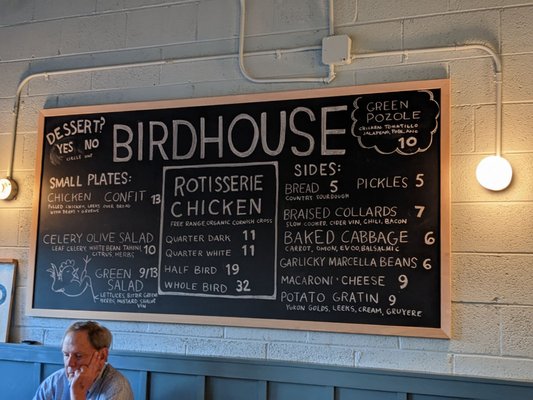 DESSERT?
YES NO
CIRCLE ONE
BIRDHOUSE
GREEN
POZOLE
CHICKEN, TOMATILLO
JALAPEÑO, POBLANO
10
SMALL PLATES:
CHICKEN CONFIT 13
PULLED CHICKEN, LEEKS OVER BREAD
WITH HERBS + GREENS
CELERY OLIVE SALAD
LEAF CELERY, WHITE BEAN TAHINI 10
CITRUS HERBS
GREEN 9/13
SALAD
LETTUCES, BITTER GREENS
HERBS, MUSTARD, SHALLOT
VIN
ROTISSERIE
CHICKEN
FREE RANGE ORGANIC CORNISH CROSS
QUARTER DARK 11
QUARTER WHITE 11
HALF BIRD 19
WHOLE BIRD 32
SIDES:
BREAD 5 PICKLES 5
COUNTRY SOURDOUGH
BRAISED COLLARDS 7
SLOW COOKED, CIDER VIN, CHILI, BACON
BAKED CABBAGE 6
CARROT, ONION, EVOO, BALSAMIC
GARLICKY MARCELLA BEANS 6
MACARONI + CHEESE 9
POTATO GRATIN 9
YUKON GOLDS, LEEKS, CREAM, GRUYERE